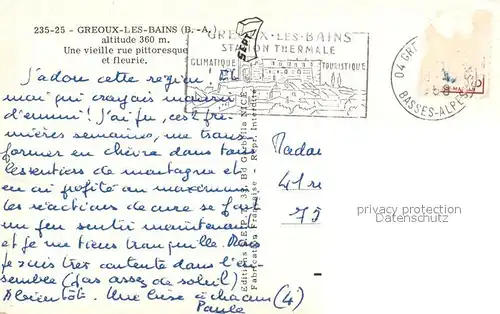 235-25 - GREOUX-LES-BAINS (B.-A.)
altitude 360 m.
Une vieille rue pittoresque
et fleurie.
GREOUX-LES-BAINS
STATION THERMALE
CLIMATIQUE
TOURISTIQUE
SEPT
04 GR
BASSES-ALPES
J'adore cette région! Et
moi qui croyais mourir
d'ennui! J'ai pu, ces
premières semaines, me trans
former en chèvre dans tous
les sentiers de montagne et
en ai profité au maximum
les réactions de cure se font
un peu sentir maintenant
et je me tiens tranquille. Mais
je suis très contente dans l'en
semble (pas assez de soleil)
A bientôt. Une bise à chacun (4)
Paule
Editions "E.P." 33, Bd Gambella NICE
Fabrication Française - Repr. Interdite
Madam
41 r
75
photographic print
PPPaulu.com